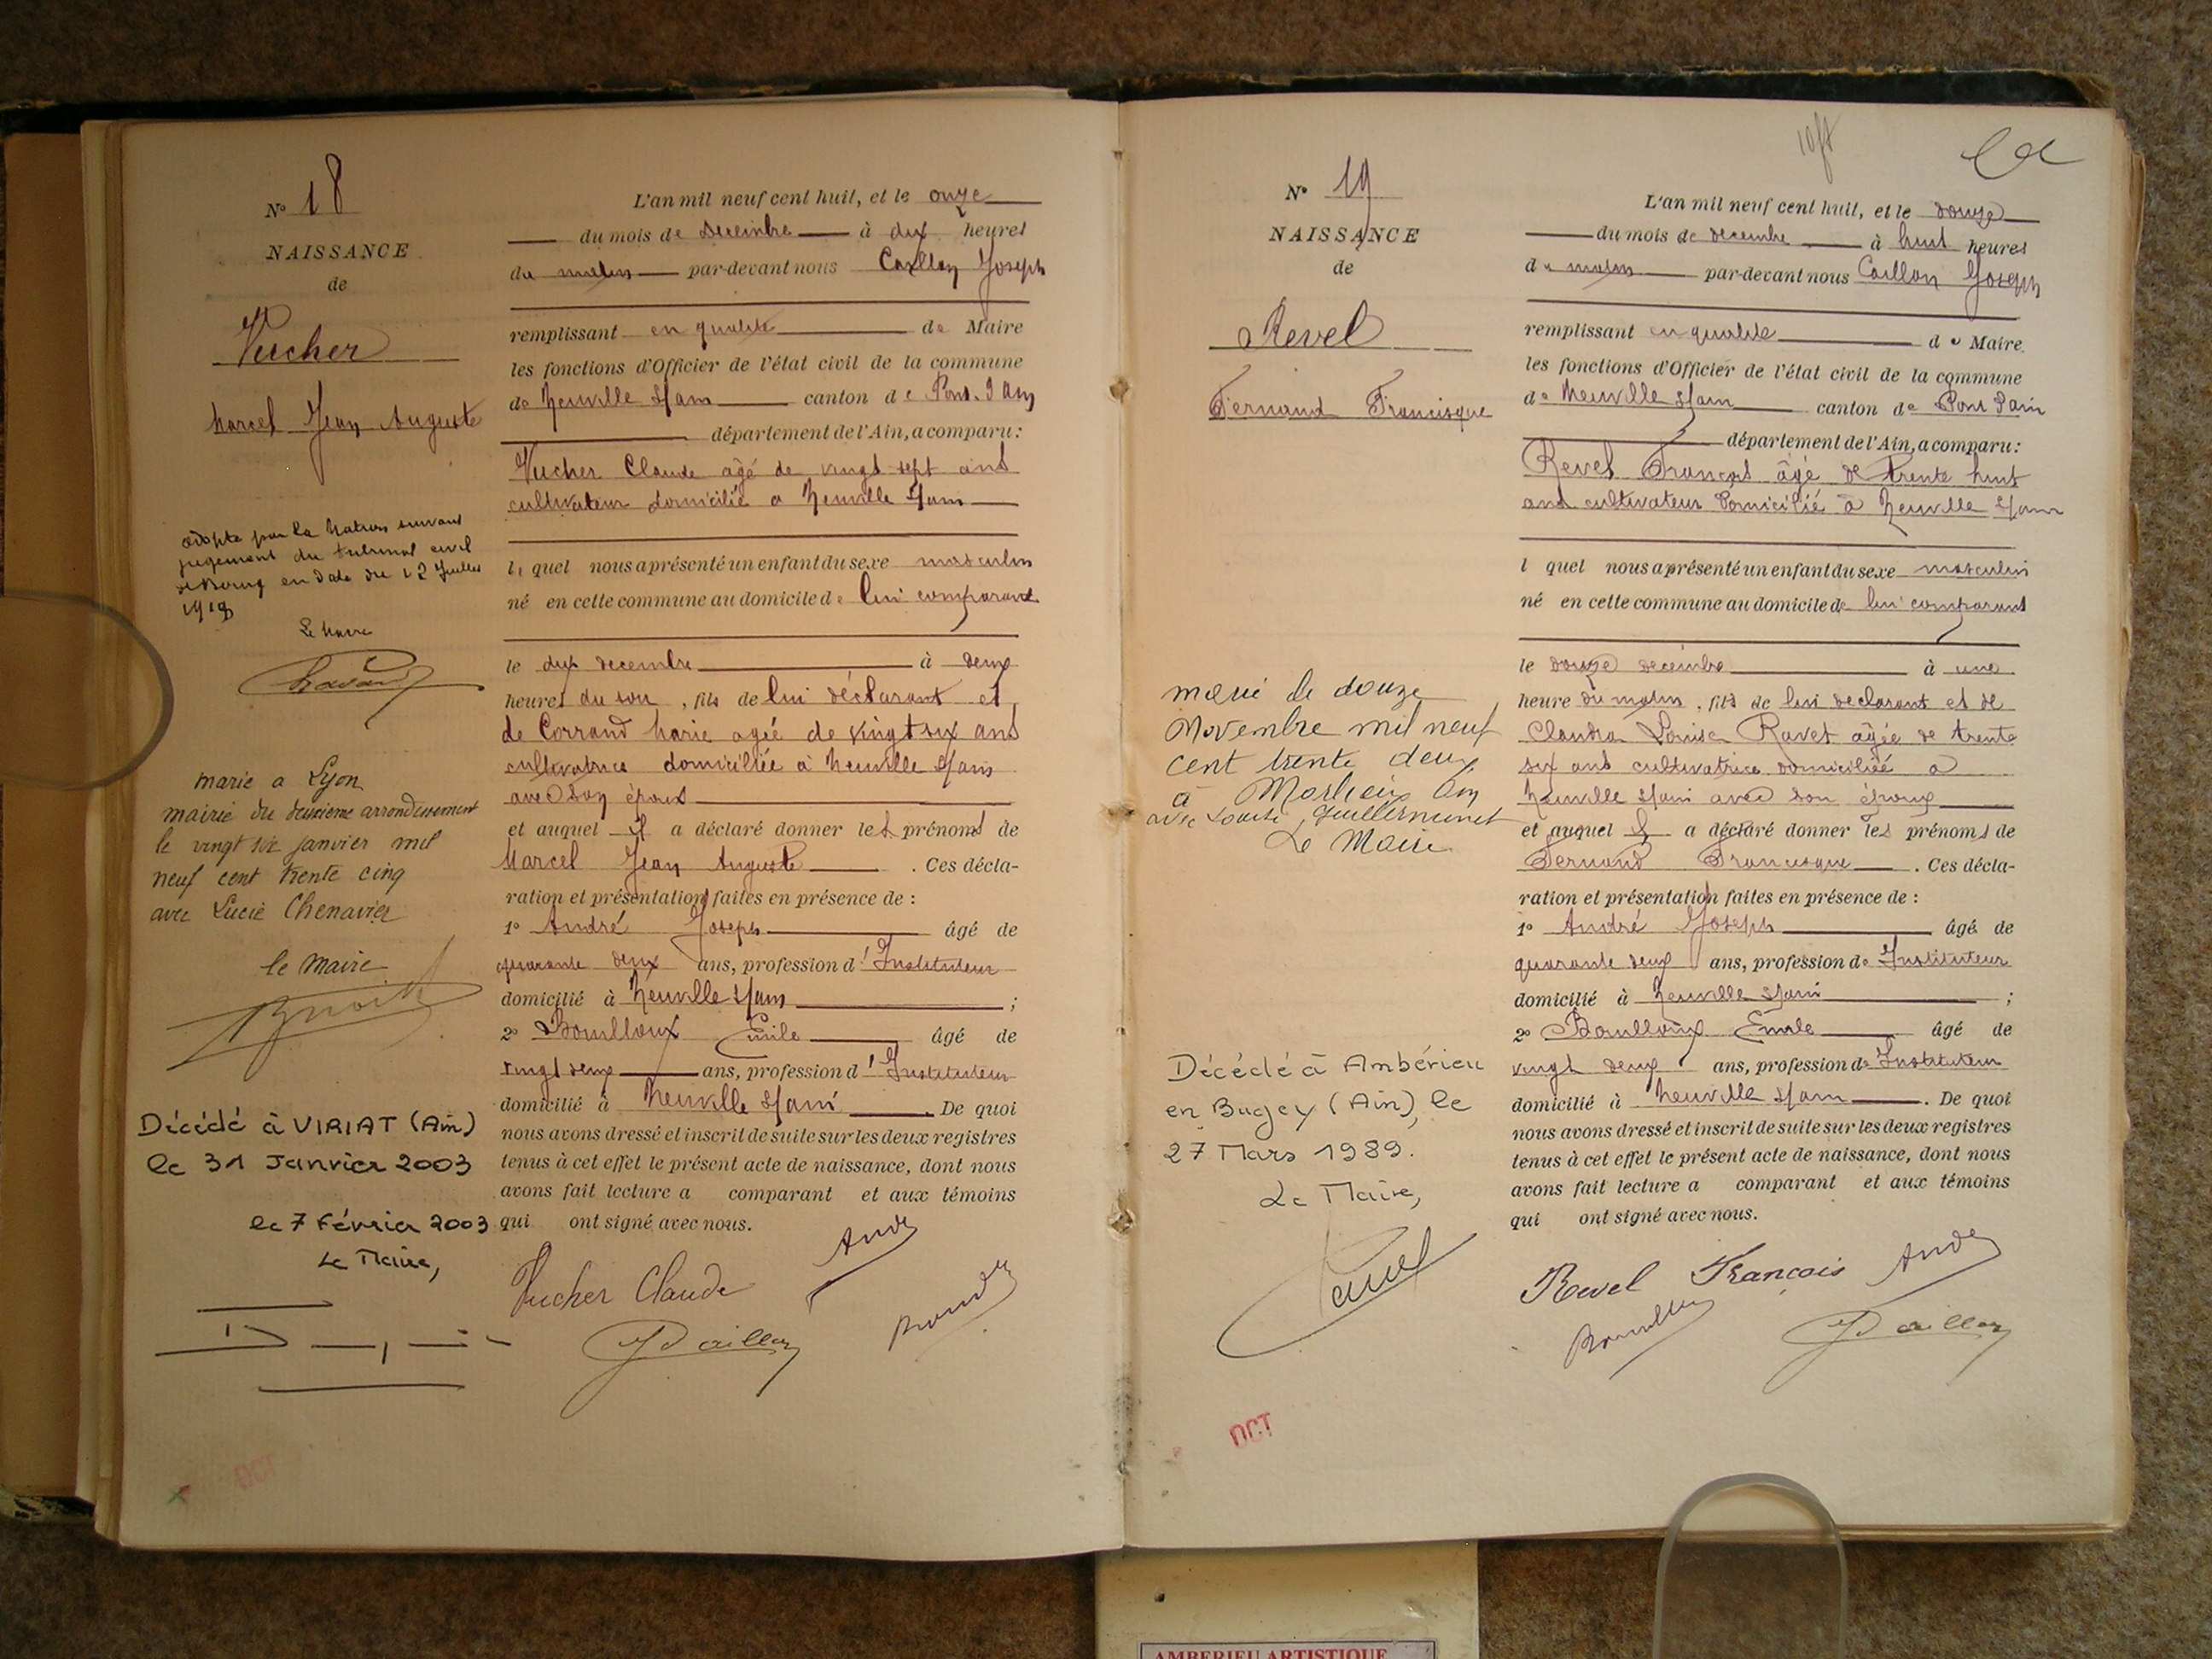 N° 18
NAISSANCE
de
Vucher
Marcel Jean Auguste
adopté par la Nation suivant
jugement du tribunal civil
de Bourg en date du 12 Juillet
1919
Le Maire
marié a Lyon
mairie du deuxième arrondissement
le vingt six janvier mil
neuf cent trente cinq
avec Lucie Chenavier
le Maire
Décédé à VIRIAT (Ain)
le 31 Janvier 2003
le 7 Février 2003
Le Maire,
L'an mil neuf cent huit, et le onze
du mois de decembre à dix heures
du matin par-devant nous Caillon Joseph
remplissant en qualité de Maire
les fonctions d'Officier de l'état civil de la commune
de Neuville s/ain canton de Pont. d'ain
département de l'Ain, a comparu :
Vucher Claude agé de vingt sept ans
cultivateur domicilié a Neuville s/ain
le quel nous a présenté un enfant du sexe masculin
né en cette commune au domicile de lui comparant
le dix decembre à deux
heures du soir, fils de lui déclarant et
de Corrand Marie agée de vingt six ans
cultivatrice domiciliée à Neuville s/ain
avec son époux
et auquel il a déclaré donner les prénoms de
Marcel Jean Auguste . Ces décla-
ration et présentation faites en présence de :
1° André Joseph âgé de
quarante deux ans, profession d'Instituteur
domicilié à Neuville s/ain ;
2° Boulloux Emile âgé de
vingt deux ans, profession d'Instituteur
domicilié à Neuville s/ain . De quoi
nous avons dressé et inscrit de suite sur les deux registres
tenus à cet effet le présent acte de naissance, dont nous
avons fait lecture a comparant et aux témoins
qui ont signé avec nous.
Vucher Claude
André
J Caillon
OCT
N° 19
NAISSANCE
de
Revel
Fernand Francisque
marié le douze
Novembre mil neuf
cent trente deux
à Ain
avec Louise Guillerminet
Le Maire
Décédé à Ambérieu
en Bugey (Ain), le
27 Mars 1989.
Le Maire,
L'an mil neuf cent huit, et le douze
du mois de decembre à huit heures
du matin par-devant nous Caillon Joseph
remplissant en qualité de Maire
les fonctions d'Officier de l'état civil de la commune
de Neuville s/ain canton de Pont d'ain
département de l'Ain, a comparu :
Revel François âgé de trente huit
ans cultivateur domicilié à Neuville s/ain
l quel nous a présenté un enfant du sexe masculin
né en cette commune au domicile de lui comparant
le douze decembre à une
heure du matin, fils de lui declarant et de
Claudia Louise Ravet agée de trente
six ans cultivatrice domiciliée a
Neuville s/ain avec son époux
et auquel il a déclaré donner les prénoms de
Fernand Francisque . Ces décla-
ration et présentation faites en présence de :
1° André Joseph âgé de
quarante deux ans, profession de Instituteur
domicilié à Neuville s/ain ;
2° Boulloux Emile âgé de
vingt deux ans, profession de Instituteur
domicilié à Neuville s/ain . De quoi
nous avons dressé et inscrit de suite sur les deux registres
tenus à cet effet le présent acte de naissance, dont nous
avons fait lecture a comparant et aux témoins
qui ont signé avec nous.
Revel François
André
J Caillon
OCT
AMBERIEU ARTISTIQUE